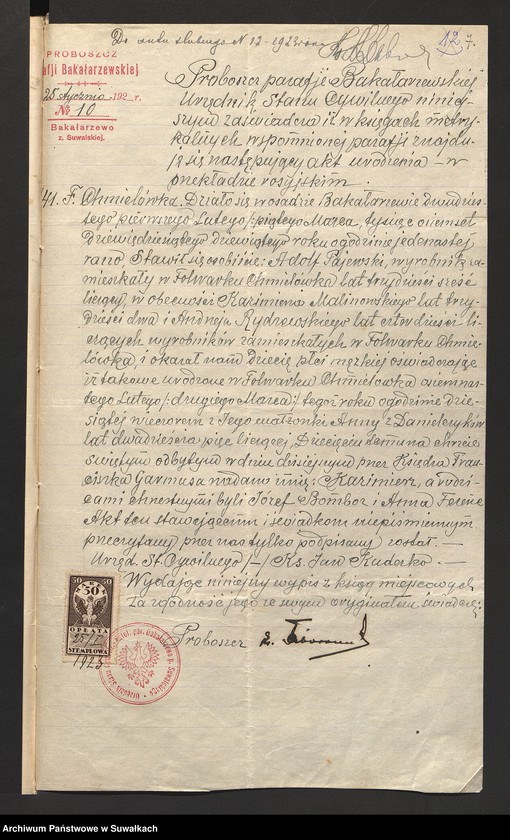 Do aktu ślubnego N 12 - 1923 roku
12 7.
PROBOSZCZ
afji Bakałarzewskiej
25 stycznia 192 r.
№ 10
Bakałarzewo
z. Suwalskiej.
Proboszcz parafji Bakałarzewskiej
Urzędnik Stanu Cywilnego niniej-
szym zaświadcza iż w księgach metry-
kalnych wspomnionej parafji znajdu-
je się następujący akt urodzenia - w
przekładzie rosyjskim.
41. F. Chmielówka. Działo się w osadzie Bakałarzewie dwudzies-
tego pierwszego Lutego /:piątego Marca, tysiąc osiemset
dziewięćdziesiątego dziewiątego roku o godzinie jedenastej
rano. Stawił się osobiście: Adolf Pajewski, wyrobnik za-
mieszkały w Folwarku Chmielówka lat trzydzieści sześć
liczący, w obecności Kazimierza Malinowskiego lat trzy-
dzieści dwa i Andrzeja Rydzewskiego lat czterdzieści li-
czących wyrobników zamieszkałych w Folwarku Chmie-
lówka, i okazał nam Dziecię płci męzkiej oświadczając
iż takowe urodzone w Folwarku Chmielówka osiemnas-
tego Lutego /:drugiego Marca:/ tegoż roku o godzinie dzie-
siątej wieczorem z Jego małżonki Anny z Danielczyków
lat dwadzieścia pięć liczącej, Dziecięciu temu na chrzcie
świętym odbytym w dniu dzisiejszym przez Księdza Fran-
ciszka Garmusa nadano imię: Kazimierz, a rodzi-
cami chrzestnymi byli Józef Bombor i Anna Ferenc
Akt ten stawającemu i świadkom niepiśmiennym
przeczytany przez nas tylko podpisany został —
Urzęd. St. Cywilnego /-/ Ks. Jan Kudorko. —
Wydając niniejszy wypis z ksiąg miejscowych
za zgodność jego ze swym oryginałem świadczę:
Proboszcz
50 50
50
OPŁATA
25/I
STEMPLOWA
1923
Archiwum Państwowe w Suwałkach